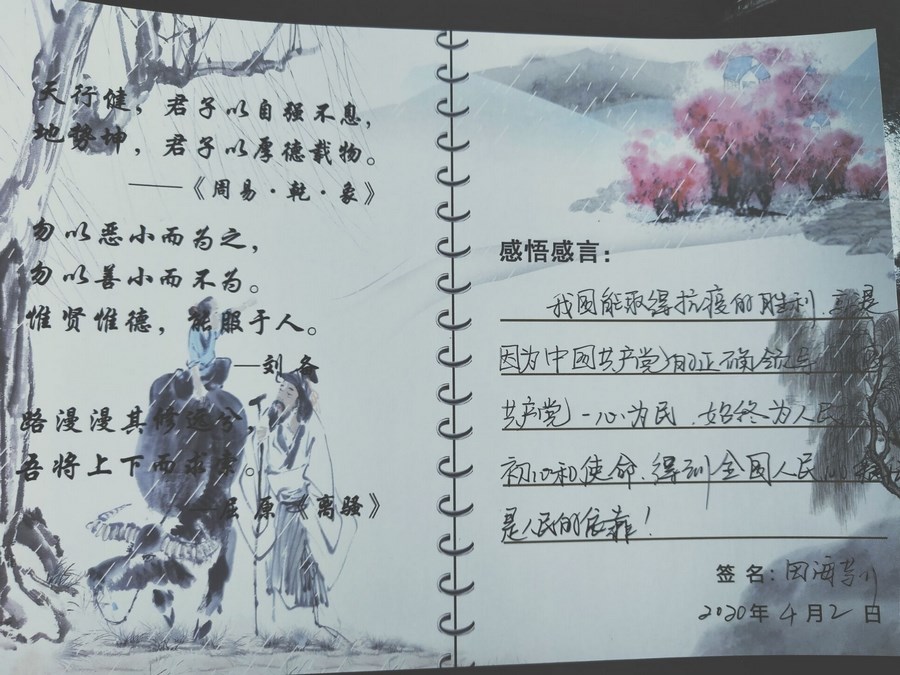 天行健，君子以自强不息，
地势坤，君子以厚德载物。
——《周易·乾·象》
勿以恶小而为之，
勿以善小而不为。
惟贤惟德，能服于人。
—刘备
路漫漫其修远兮，
吾将上下而求索。
—屈原《离骚》
感悟感言：
我国能取得抗疫的胜利，就是
因为中国共产党的正确领导
共产党一心为民，始终为人民
初心和使命，得到全国人民
是人民的依靠！
签名：田海
2020年4月2日